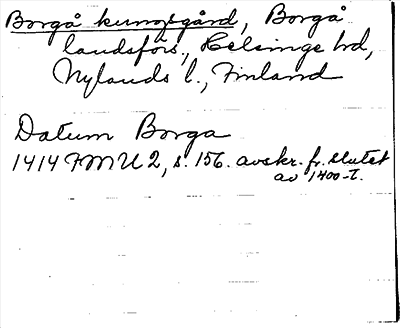 Borgå kungsgård, Borgå
landsförs., Helsinge hd,
Nylands l., Finland
Datum Borga
1414 FMU 2, s. 156. avskr. fr. slutet
av 1400-t.